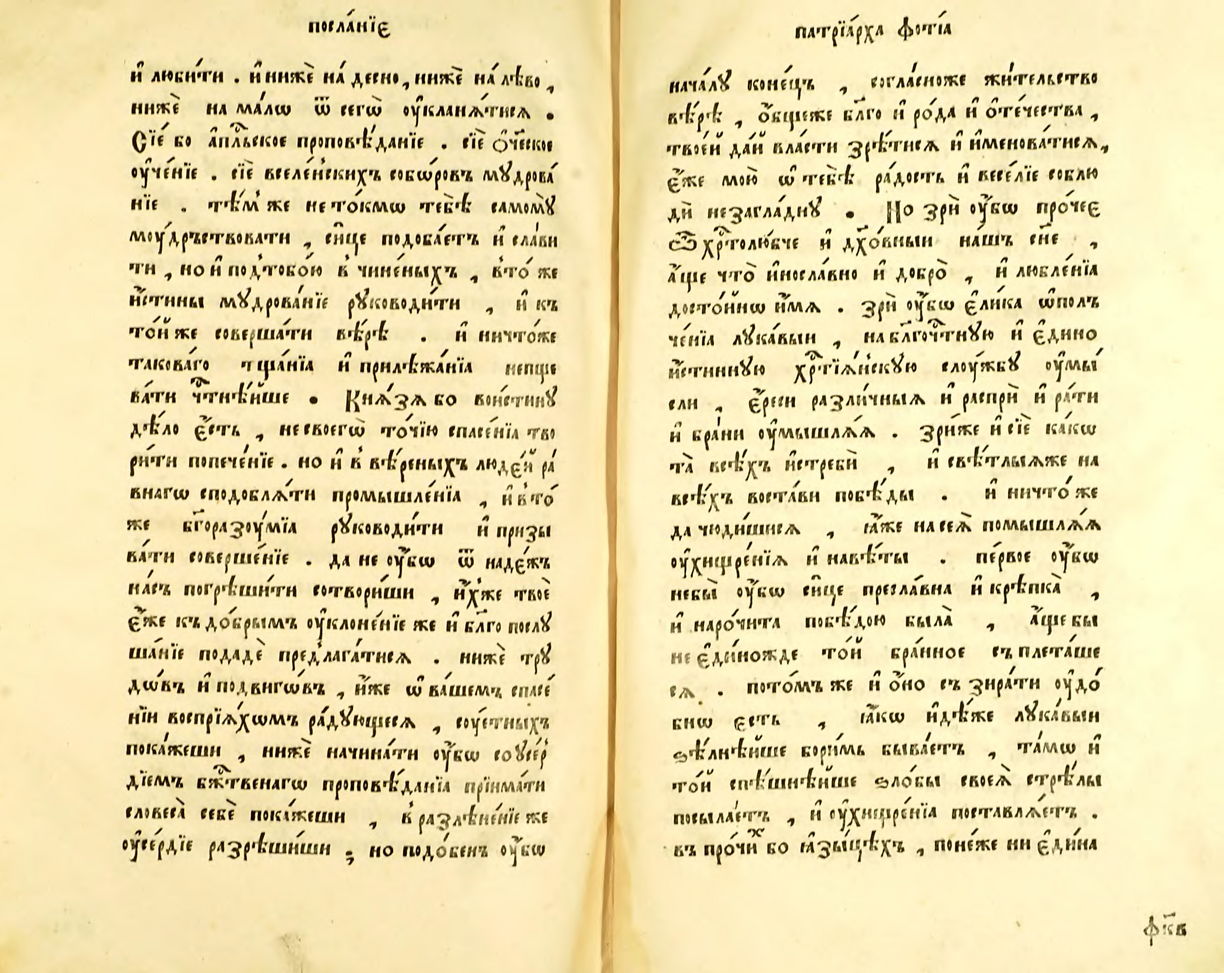 посла́нїе
и҆ люби́ти . и҆ нижѐ на́ десно , нижѐ на́ лѣво ,
нижѐ на ма́лѡ ѿ сегѡ̀ ᲂу҆кланѧ́тисѧ .
Сїе́ бо а҆пⷭ҇льское проповѣ́данїе . сїѐ ѻ҆́ч҃еское
ᲂу҆че́нїе . сїѐ вселе́нскихъ собѡ́ровъ мꙋдрова́
нїе . тѣ́м же не то́кмѡ тебѣ̀ самомꙋ̀
моу́дръствовати , си́це подоба́етъ и҆ слави
ти , но и҆ под̾ тобо́ю в̾ чине́ныхъ , в̾то́ же
и҆́стины мꙋдрова́нїе рꙋководи́ти , и҆ къ
то́йже соверша́ти вѣ́рѣ . и҆ ничто́же
таковáго тщáнїа и҆ прилѣжáнїа непще
вáти чⷭ҇тнѣ́йше . Кнѧ́зѧ бо вои́стинꙋ
дѣ́ло є҆́сть , не своегѡ̀ то́чїю спасе́нїа тво
ри́ти попече́нїе . но и҆ в̾ вѣ́реныхъ люде́й ра́
внагѡ сподоблѧ́ти промышле́нїа , и҆ в̾то́
же бг҃оразꙋ́мїа рꙋководи́ти и҆ призы
вáти соверше́нїе . да не ᲂу҆̀бѡ ѿ наде́жъ
на́съ погрѣши́ти сотвори́ши , и҆́хже твоѐ
є҆́же къ до́брымъ ᲂу҆клоне́нїе же и҆ бл҃го послꙋ
ша́нїе подадѐ пред̾лага́тисѧ . нижѐ трꙋ
дѡ́въ и҆ по́двигѡвъ , и҆̀же ѡ҆ ва́шемъ спасе́
нїи воспрїѧ́хѡмъ рáдꙋющесѧ , соу́етныхъ
покáжеши , нижѐ начинáти ᲂу҆̀бѡ со ᲂу҆се́р
дїемъ бжⷭ҇твенагѡ проповѣ́данїа прїимáти
словесà себѐ покáжеши , в̾ разлѣне́нїе же
ᲂу҆се́рдїе разрѣши́ши ; но подо́бенъ ᲂу҆̀бѡ
патрїа́рха фотїа
нача́лꙋ коне́цъ , согла́сноже жи́тельство
вѣ́рѣ , ѻ҆́бщеже бл҃го и҆ ро́да и҆ ѻ҆те́чества ,
твое́й да́й вла́сти зрѣ́тисѧ и҆ и҆менова́тисѧ ,
є҆́же мою̀ ѡ҆ тебѣ̀ ра́дость и҆ весе́лїе соблю
дѝ незагла́днꙋ . Но зрѝ ᲂу҆̀бѡ про́чее
Ѽ хрⷭ҇толю́бче и҆ дх҃о́вныи на́шъ сн҃е ,
а҆́ще что̀ и҆носла́вно и҆ добро̀ , и҆ любле́нїа
досто́йнѡ и҆́мѧ . зрѝ ᲂу҆̀бѡ є҆ли́ка ѡ҆полъ
че́нїа лꙋка́выи , на бл҃гочⷭ҇тнꙋю и҆ є҆ди́но
и҆́стиннꙋю хрⷭ҇тїа́нскꙋю слоу́жбꙋ ᲂу҆мы́
сли , є҆́реси разли́чныѧ и҆ ра́спри и҆ ра́ти
и҆ бра́ни ᲂу҆мышлѧ́ѧ . зри́же и҆ сїѐ ка́кѡ
та̀ всѣ́хъ и҆стребѝ , и҆ свѣ́тлыѧже на
всѣ́хъ воста́ви побѣ́ды . и҆ ничто́ же
да чюди́шисѧ , ꙗ҆̀же на сеѧ̀ помышлѧ́ѧ
ᲂу҆хищре́нїѧ и҆ навѣ́ты . пе́рвое ᲂу҆̀бѡ
небы̀ ᲂу҆̀бѡ си́це пресла́вна и҆ крѣ́пка̀ ,
и҆ наро́чита побѣ́дою была̀ , а҆́ще бы
не є҆ди́ножде то́й бра́нное съплета́ше
сѧ . пото́мъ же и҆ ѻ҆́но съзира́ти ᲂу҆до́
бнѡ є҆сть , ꙗ҆́кѡ и҆дѣ́же лꙋка́выи
ѕѣлнѣ́йше бори́мь быва́етъ , та́мѡ и҆
то́й спѣ́шнѣйше ѕло́бы своеѧ̀ стрѣ́лы
посыла́етъ , и҆ ᲂу҆хищре́нїа поставлѧ́етъ .
въ про́чиⷯ бо ꙗ҆зы́цѣхъ , поне́же ни є҆ди́на
фк҃в